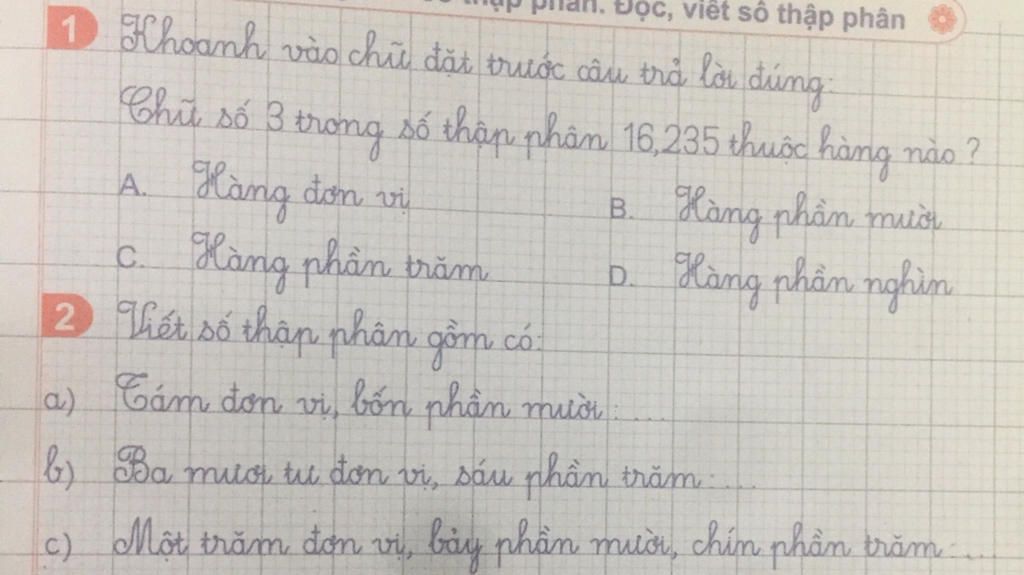 phân. Đọc, viết số thập phân
1 Khoanh vào chữ đặt trước câu trả lời đúng:
Chữ số 3 trong số thập phân 16,235 thuộc hàng nào?
A. Hàng đơn vị B. Hàng phần mười
C. Hàng phần trăm D. Hàng phần nghìn
2 Viết số thập phân gồm có:
a) Tám đơn vị, bốn phần mười:....
b) Ba mươi tư đơn vị, sáu phần trăm:....
c) Một trăm đơn vị, bảy phần mười, chín phần trăm:...